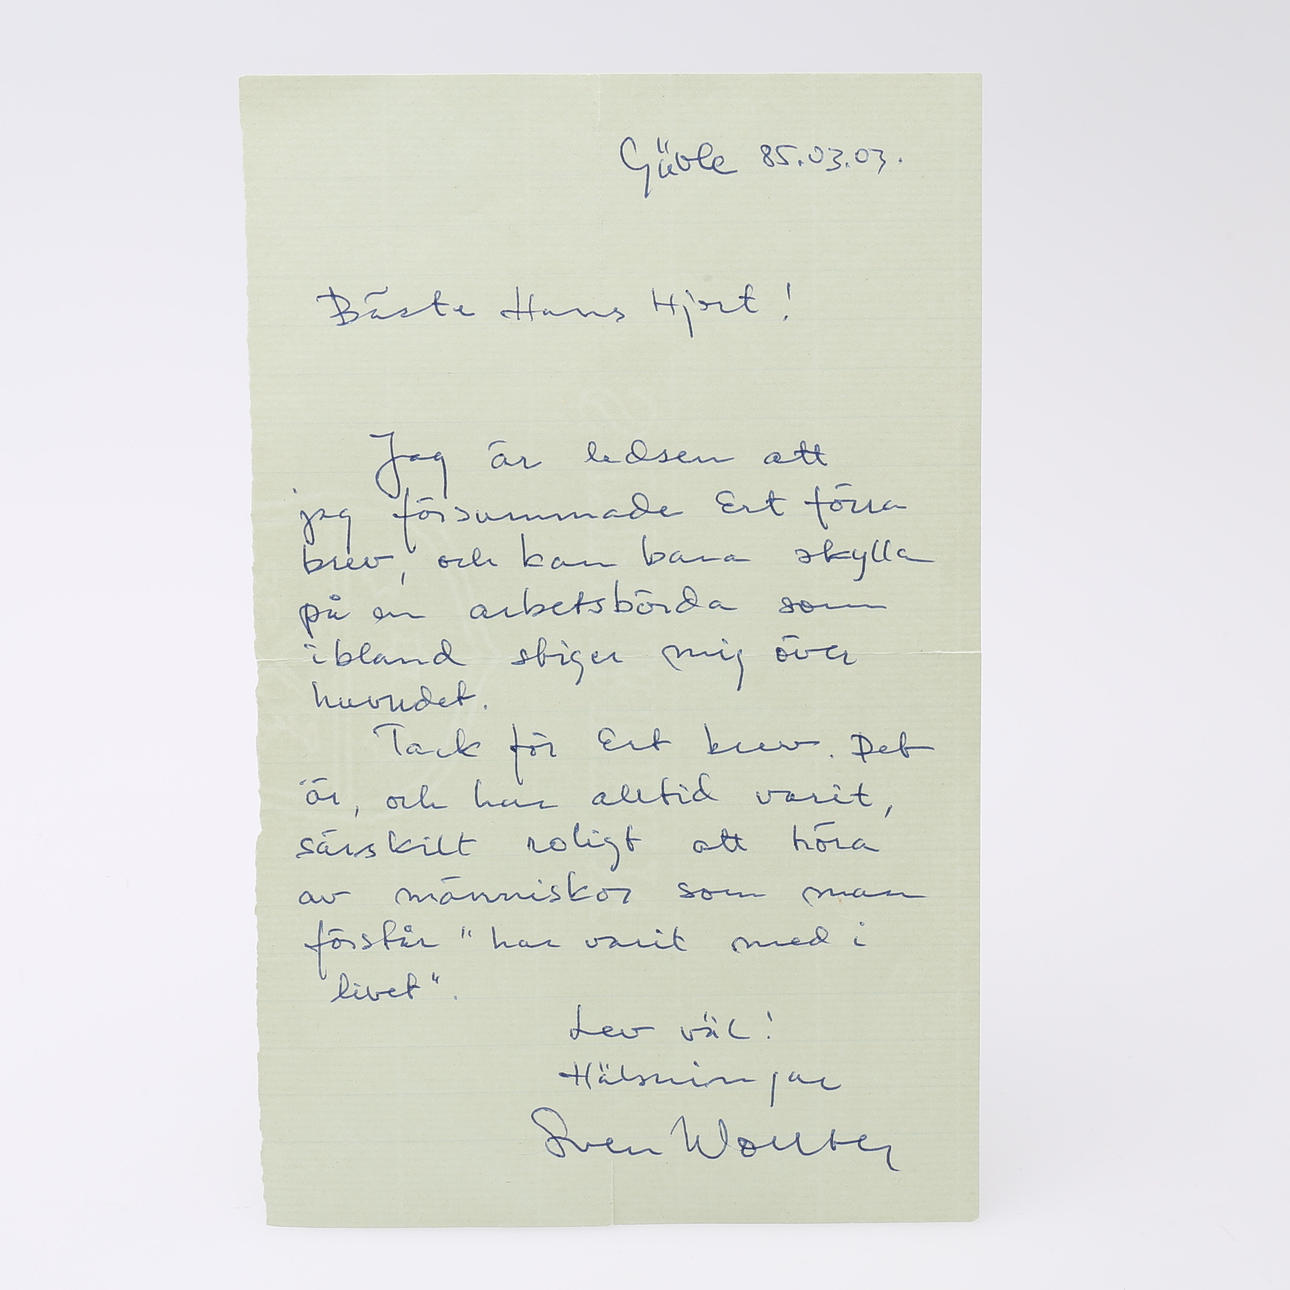 Gävle 85.03.03.
Bäste Hans Hjort!
Jag är ledsen att
jag försummade Ert förra
brev, och kan bara skylla
på en arbetsbörda som
ibland stiger mig över
huvudet.
Tack för Ert brev. Det
är, och har alltid varit,
särskilt roligt att höra
av människor som man
förstår "har varit med i
livet".
Lev väl!
Hälsningar
Sven Wollter